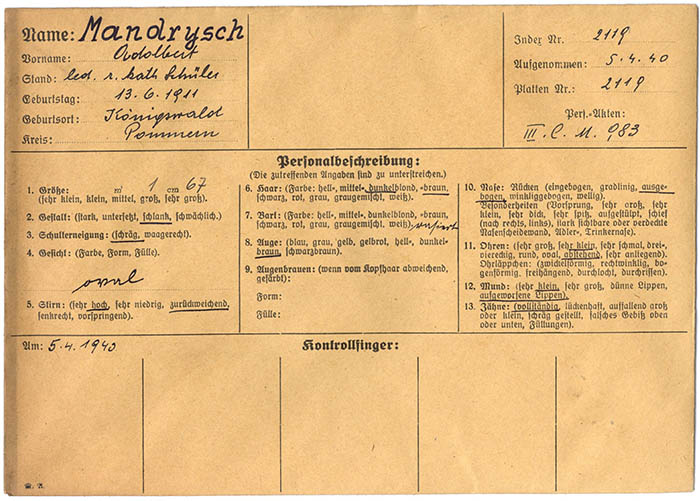 Name: Mandrysch
Vorname: Adolbert
Stand: led. r. kath Schüler
Geburtstag: 13.6.1911
Geburtsort: Königswald
Kreis: Pommern
Index Nr. 2119
Aufgenommen: 5.4.40
Platten Nr.: 2119
Pers.-Akten:
III. C. M. 983
Personalbeschreibung:
(Die zutreffenden Angaben sind zu unterstreichen.)
1. Größe: m 1 cm 67
(sehr klein, klein, mittel, groß, sehr groß).
2. Gestalt: (stark, untersetzt, schlank, schwächlich).
3. Schulterneigung: (schräg, waagerecht).
4. Gesicht: (Farbe, Form, Fülle).
oval
5. Stirn: (sehr hoch, sehr niedrig, zurückweichend,
senkrecht, vorspringend).
6. Haar: (Farbe: hell-, mittel-, dunkelblond, -braun,
schwarz, rot, grau, graugemischt, weiß).
7. Bart: (Farbe: hell-, mittel-, dunkelblond, -braun,
schwarz, rot, grau, graugemischt, weiß). rasiert
8. Auge: (blau, grau, gelb, gelbrot, hell-, dunkel-
braun, schwarzbraun).
9. Augenbrauen: (wenn vom Kopfhaar abweichend,
gefärbt):
Form:
Fülle:
10. Nase: Rücken (eingebogen, gradlinig, ausge-
bogen, winkliggebogen, wellig).
Besonderheiten (Vorsprung, sehr groß, sehr
klein, sehr dick, sehr spitz, aufgestülpt, schief
(nach rechts, links), stark sichtbare oder verdeckte
Nasenscheidewand, Adler-, Trinkernase).
11. Ohren: (sehr groß, sehr klein, sehr schmal, drei-,
viereckig, rund, oval, abstehend, sehr anliegend).
Ohrläppchen: (zwickelförmig, rechtwinklig, bo-
genförmig, freihängend, durchlocht, durchrissen).
12. Mund: (sehr klein, sehr groß, dünne Lippen,
aufgeworfene Lippen).
13. Zähne: (vollständig, lückenhaft, auffallend groß
oder klein, schräg gestellt, falsches Gebiß oben
oder unten, Füllungen).
Am: 5.4.1940
Kontrollfinger: